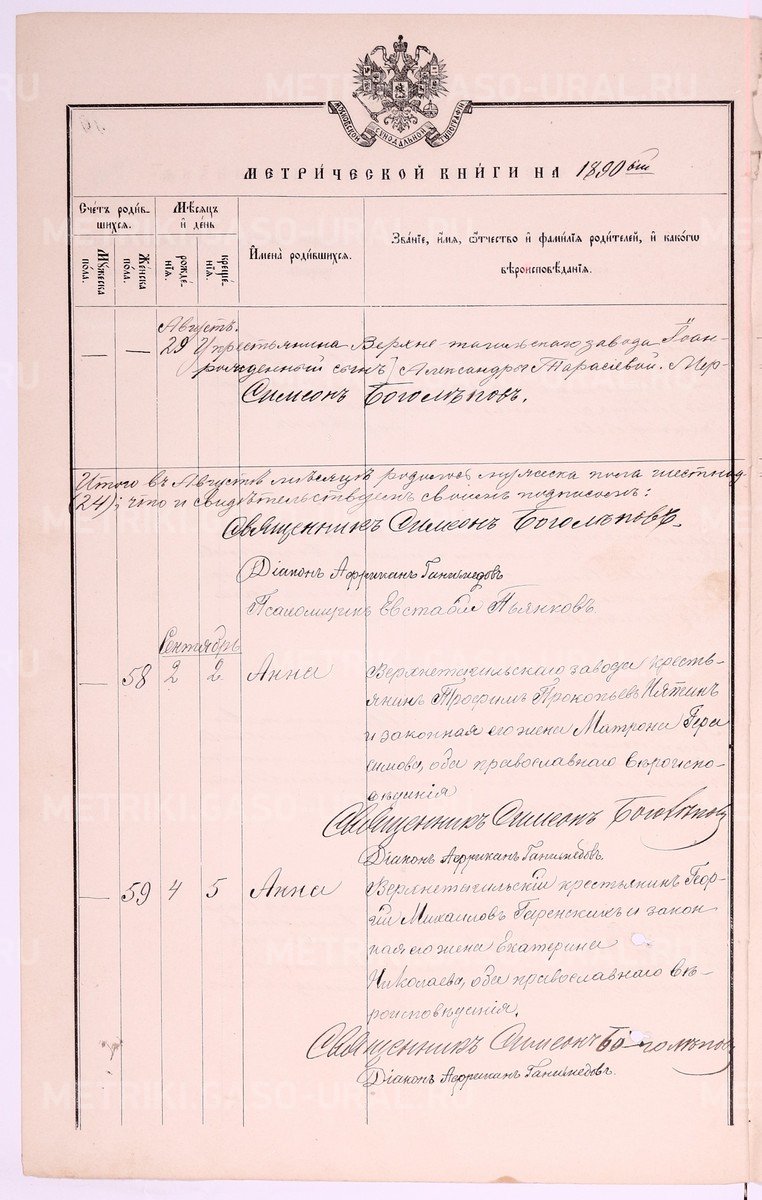 МОСКОВСКОЙ СѴНОДАЛЬНОЙ ТИПОГРАФІИ
МЕТРИЧЕСКОЙ КНИГИ НА 1890 годъ
Счетъ родившихся.
Мѣсяцъ и день
Мужеска пола.
Женска пола.
рожденія.
крещенія.
Имена родившихся.
Званіе, имя, отчество и фамилія родителей, и какогѡ
вѣроисповѣданія.
Августъ.
— — 29 У крестьянина Верхне-тагильскаго завода Іоан-
рожденный сынъ] Александры Тарасіевой. Мер-
Симеонъ Боголѣповъ.
Итого въ Августѣ мѣсяцѣ родилось мужеска пола шестнад
(24); что и свидѣтельствуемъ своимъ подписомъ:
Священникъ Симеонъ Боголѣповъ.
Діаконъ Африканъ Ганимедовъ
Псаломщикъ Евстафій Пьянковъ.
Сентябрь
— 58 2 2 Анна Верхнетагильскаго завода кресть-
янинъ Трофимъ Прокопьевъ
и законная его жена Матрона Гера
симова, оба православнаго вѣроиспо-
вѣданія
Священникъ Симеонъ Боголѣповъ
Діаконъ Африканъ Ганимедовъ.
— 59 4 5 Анна Верхнетагильскій крестьянинъ Геор-
гій Михаиловъ Гаренскихъ и закон
ная его жена Екатерина
Николаева, оба православнаго вѣ-
роисповѣданія.
Священникъ Симеонъ Боголѣповъ
Діаконъ Африканъ Ганимедовъ.
METRIKI.GASO-URAL.RU